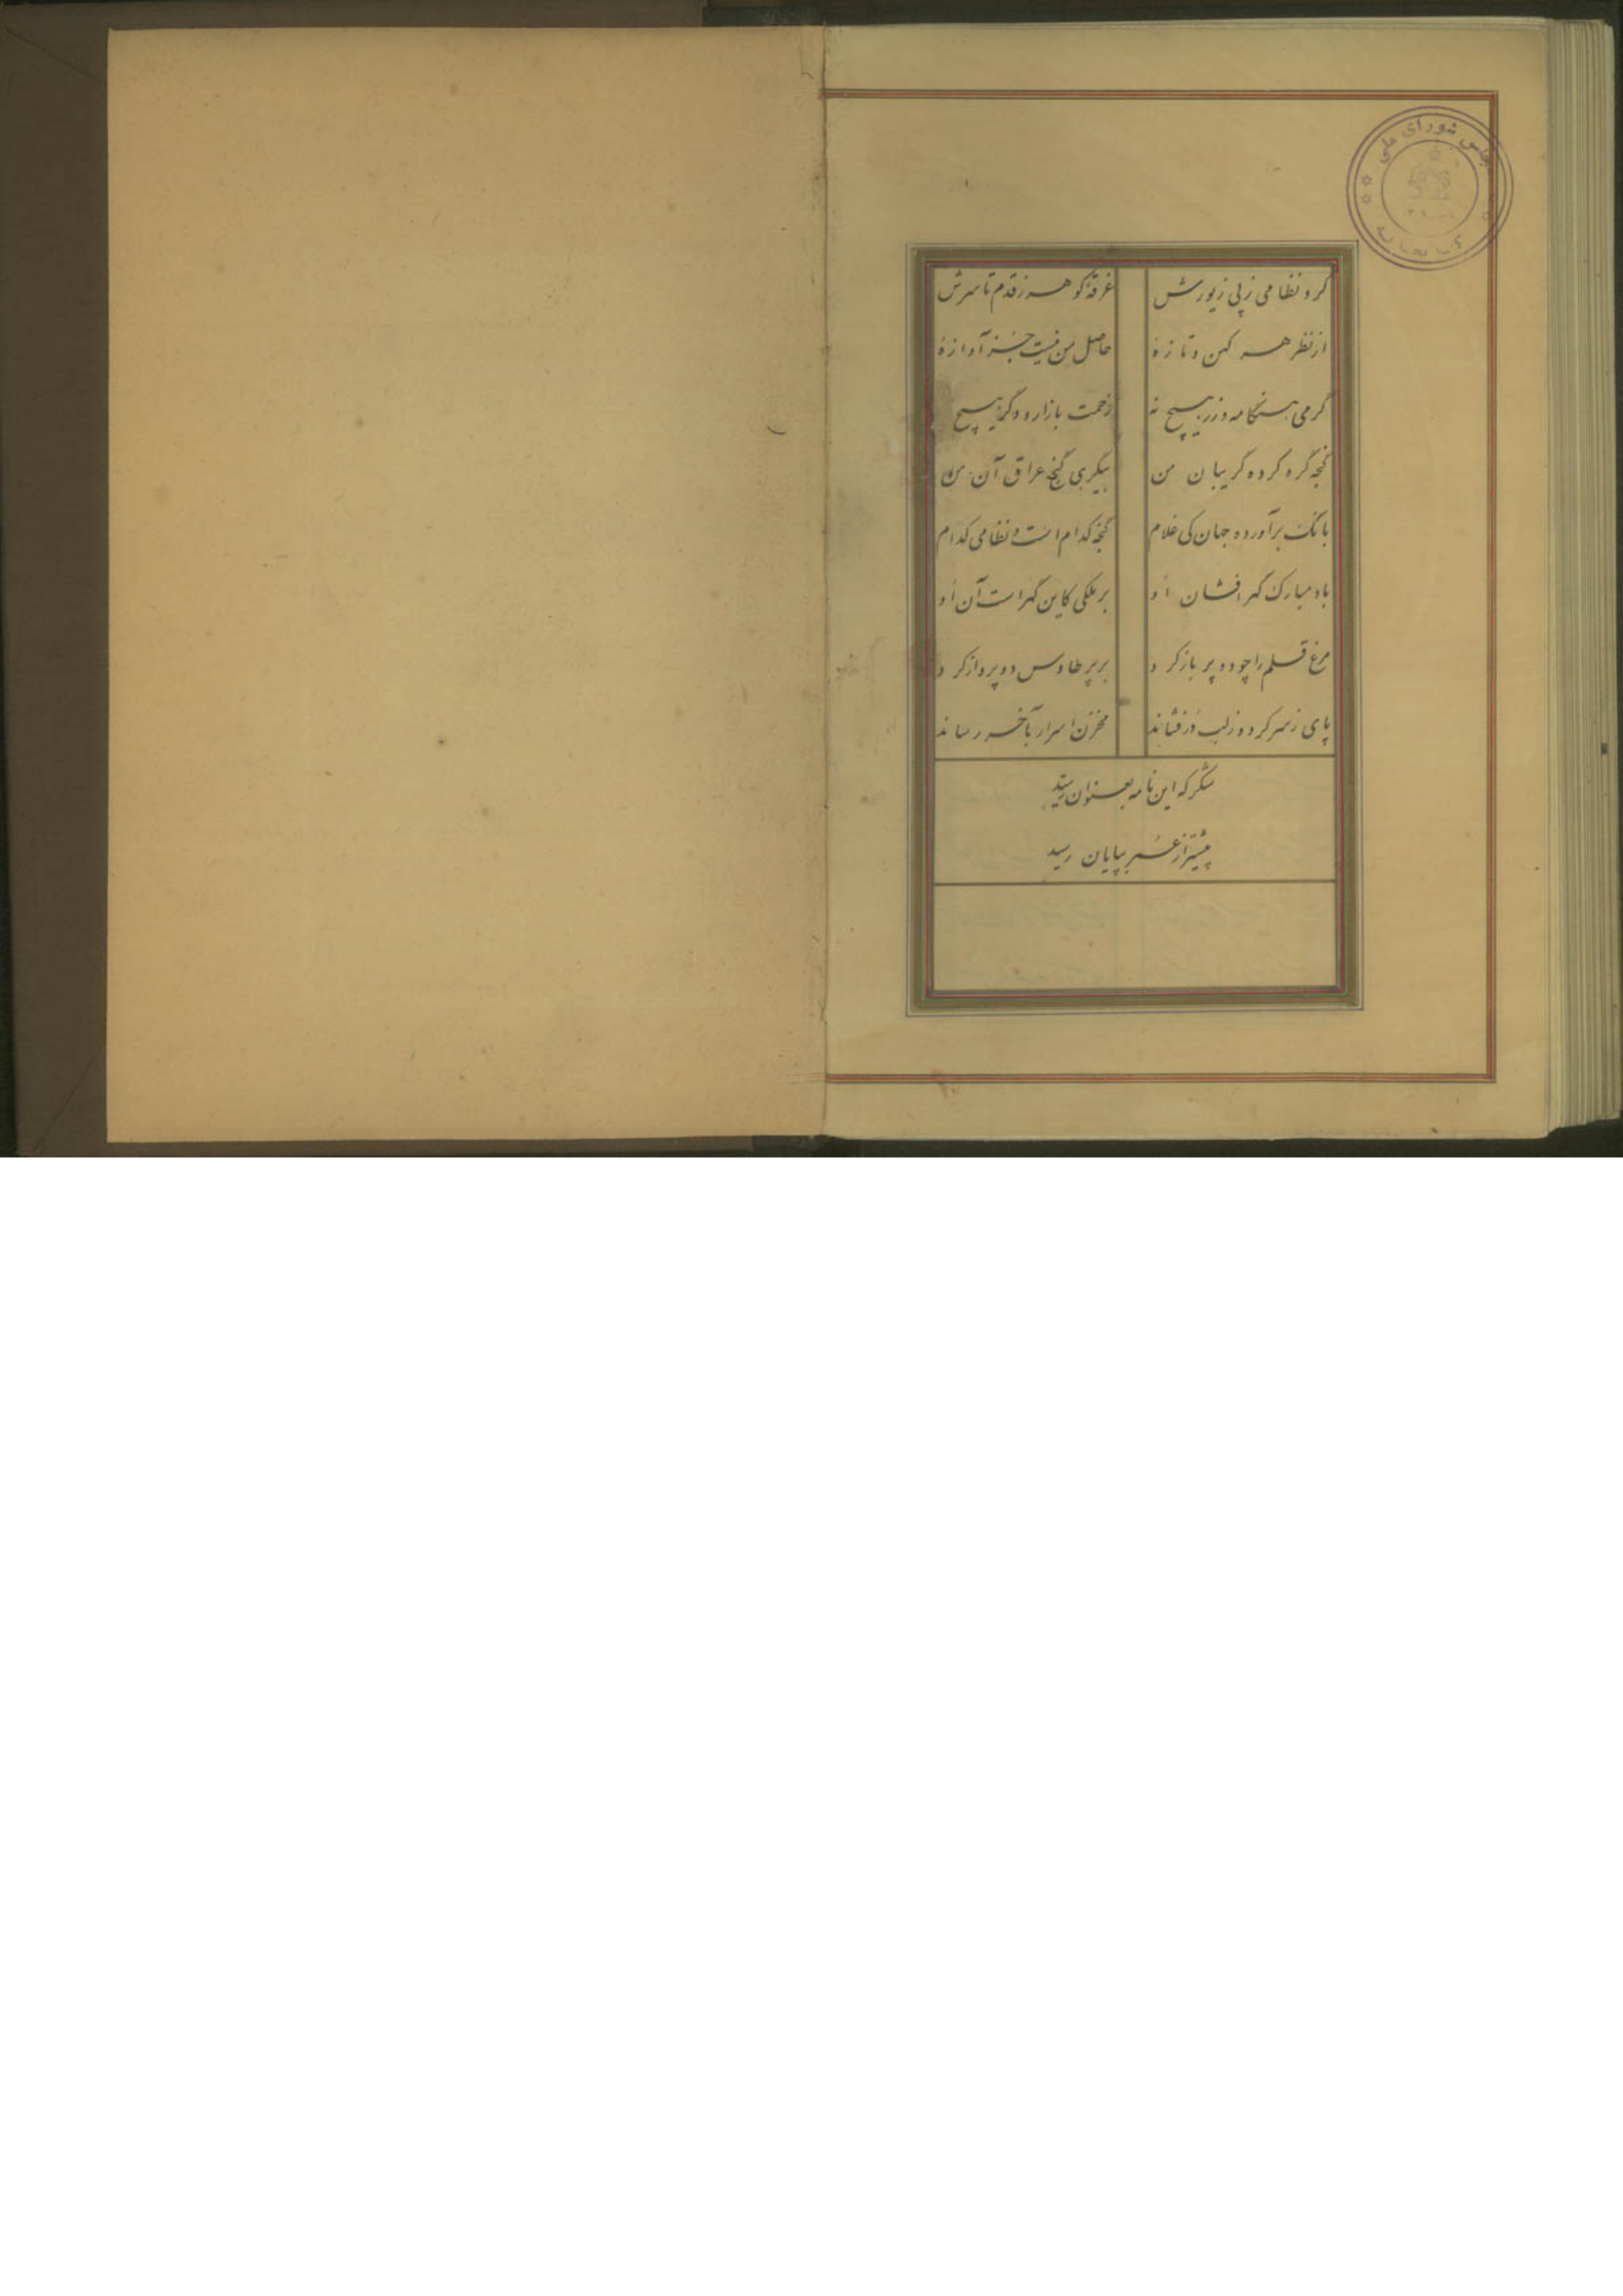 مجلس شورای ملی
کتابخانه
کرد نظامی ز پی زیورش غرقه گوهر ز قدم تا سرش
از نظر هر کهن و تازهٔ حاصل من نیست جز آوازهٔ
گرمی هنگامه و زر هیچ نه زحمت بازار و دگر هیچ
گنجه گره کرده گریبان من بیگری گنج عراق آن من
بانگ برآورده جهان کی غلام گنجه کدام است و نظامی کدام
باد مبارک گهرافشان او بر ملکی کاین گهر است آن او
مرغ قلم را چو دو پر باز کرد بر پر طاوس دو پرواز کرد
پای ز سر کرد و ز لب در فشاند مخزن اسرار بآخر رساند
شکر که این نامه بعنوان رسید
پیشتر از عمر بپایان رسید